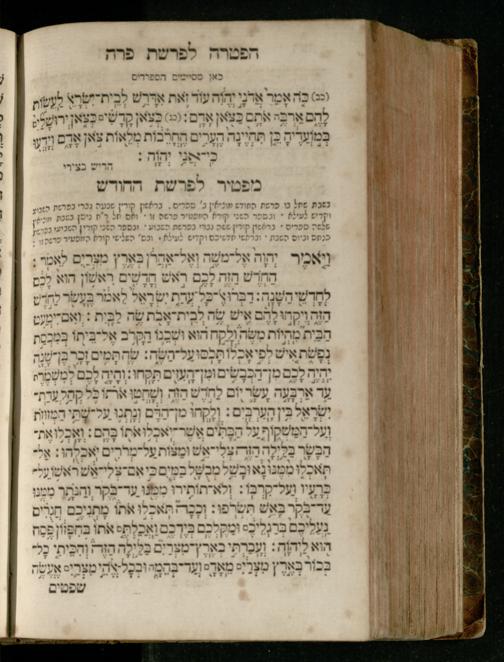 הפטרה לפרשת פרה
כאן מסיימים הספרדים
(לב) כֹּה אָמַר אֲדֹנָי יֱהֹוִה עוֹד זֹאת אִדָּרֵשׁ לְבֵית־יִשְׂרָאֵל לַעֲשׂוֹת
לָהֶם אַרְבֶּה אֹתָם כַּצֹּאן אָדָם: (לח) כְּצֹאן קָדָשִׁים כְּצֹאן יְרוּשָׁלַ͏ִם
בְּמוֹעֲדֶיהָ כֵּן תִּהְיֶינָה הֶעָרִים הֶחֳרֵבוֹת מְלֵאוֹת צֹאן אָדָם וְיָדְעוּ
כִּי־אֲנִי יְהוָה:
מפטיר לפרשת החודש
וַיֹּאמֶר יְהוָה אֶל־מֹשֶׁה וְאֶל־אַהֲרֹן בְּאֶרֶץ מִצְרַיִם לֵאמֹר:
הַחֹדֶשׁ הַזֶּה לָכֶם רֹאשׁ חֳדָשִׁים רִאשׁוֹן הוּא לָכֶם
לְחָדְשֵׁי הַשָּׁנָה: דַּבְּרוּ אֶל־כָּל־עֲדַת יִשְׂרָאֵל לֵאמֹר בֶּעָשֹׂר לַחֹדֶשׁ
הַזֶּה וְיִקְחוּ לָהֶם אִישׁ שֶׂה לְבֵית־אָבֹת שֶׂה לַבָּיִת: וְאִם־יִמְעַט
הַבַּיִת מִהְיוֹת מִשֶּׂה וְלָקַח הוּא וּשְׁכֵנוֹ הַקָּרֹב אֶל־בֵּיתוֹ בְּמִכְסַת
נְפָשֹׁת אִישׁ לְפִי אָכְלוֹ תָּכֹסּוּ עַל־הַשֶּׂה: שֶׂה תָמִים זָכָר בֶּן־שָׁנָה
יִהְיֶה לָכֶם מִן־הַכְּבָשִׂים וּמִן־הָעִזִּים תִּקָּחוּ: וְהָיָה לָכֶם לְמִשְׁמֶרֶת
עַד אַרְבָּעָה עָשָׂר יוֹם לַחֹדֶשׁ הַזֶּה וְשָׁחֲטוּ אֹתוֹ כֹּל קְהַל עֲדַת־
יִשְׂרָאֵל בֵּין הָעַרְבָּיִם: וְלָקְחוּ מִן־הַדָּם וְנָתְנוּ עַל־שְׁתֵּי הַמְּזוּזֹת
וְעַל־הַמַּשְׁקוֹף עַל הַבָּתִּים אֲשֶׁר־יֹאכְלוּ אֹתוֹ בָּהֶם: וְאָכְלוּ אֶת־
הַבָּשָׂר בַּלַּיְלָה הַזֶּה צְלִי־אֵשׁ וּמַצּוֹת עַל־מְרֹרִים יֹאכְלֻהוּ: אַל־
תֹּאכְלוּ מִמֶּנּוּ נָא וּבָשֵׁל מְבֻשָּׁל בַּמָּיִם כִּי אִם־צְלִי־אֵשׁ רֹאשׁוֹ עַל־
כְּרָעָיו וְעַל־קִרְבּוֹ: וְלֹא־תוֹתִירוּ מִמֶּנּוּ עַד־בֹּקֶר וְהַנֹּתָר מִמֶּנּוּ
עַד־בֹּקֶר בָּאֵשׁ תִּשְׂרֹפוּ: וְכָכָה תֹּאכְלוּ אֹתוֹ מָתְנֵיכֶם חֲגֻרִים
נַעֲלֵיכֶם בְּרַגְלֵיכֶם וּמַקֶּלְכֶם בְּיֶדְכֶם וַאֲכַלְתֶּם אֹתוֹ בְּחִפָּזוֹן פֶּסַח
הוּא לַיהוָה: וְעָבַרְתִּי בְאֶרֶץ־מִצְרַיִם בַּלַּיְלָה הַזֶּה וְהִכֵּיתִי כָל־
בְּכוֹר בְּאֶרֶץ מִצְרַיִם מֵאָדָם וְעַד־בְּהֵמָה וּבְכָל־אֱלֹהֵי מִצְרַיִם אֶעֱשֶׂה
שפטים